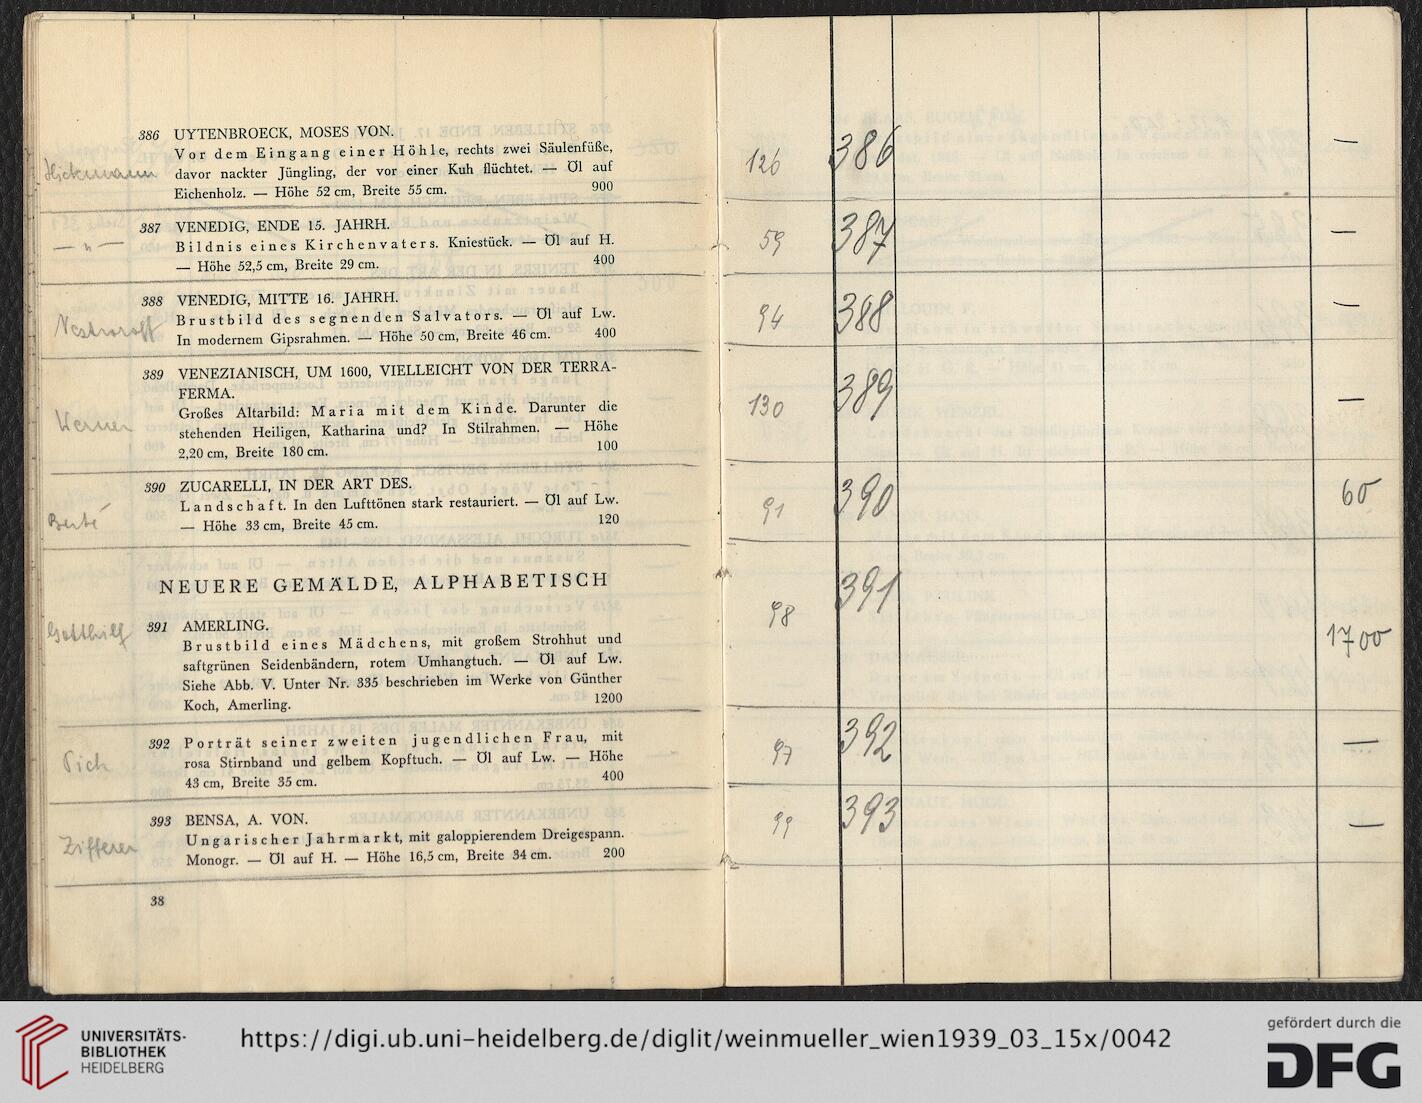 386 UYTENBROECK, MOSES VON.
Vor dem Eingang einer Höhle, rechts zwei Säulenfüße,
davor nackter Jüngling, der vor einer Kuh flüchtet. — Öl auf
Eichenholz. — Höhe 52 cm, Breite 55 cm. 900
Hickmann
126 386 —
387 VENEDIG, ENDE 15. JAHRH.
Bildnis eines Kirchenvaters. Kniestück. — Öl auf H.
— Höhe 52,5 cm, Breite 29 cm. 400
— " —
59 387 —
388 VENEDIG, MITTE 16. JAHRH.
Brustbild des segnenden Salvators. — Öl auf Lw.
In modernem Gipsrahmen. — Höhe 50 cm, Breite 46 cm. 400
94 388 —
389 VENEZIANISCH, UM 1600, VIELLEICHT VON DER TERRA-
FERMA.
Großes Altarbild: Maria mit dem Kinde. Darunter die
stehenden Heiligen, Katharina und? In Stilrahmen. — Höhe
2,20 cm, Breite 180 cm. 100
Werner
130 389 —
390 ZUCARELLI, IN DER ART DES.
Landschaft. In den Lufttönen stark restauriert. — Öl auf Lw.
— Höhe 33 cm, Breite 45 cm. 120
Berté
91 390 60
NEUERE GEMÄLDE, ALPHABETISCH
391 AMERLING.
Brustbild eines Mädchens, mit großem Strohhut und
saftgrünen Seidenbändern, rotem Umhangtuch. — Öl auf Lw.
Siehe Abb. V. Unter Nr. 335 beschrieben im Werke von Günther
Koch, Amerling. 1200
Gotthilf
98 391 1700
392 Porträt seiner zweiten jugendlichen Frau, mit
rosa Stirnband und gelbem Kopftuch. — Öl auf Lw. — Höhe
43 cm, Breite 35 cm. 400
Pich
97 392 —
393 BENSA, A. VON.
Ungarischer Jahrmarkt, mit galoppierendem Dreigespann.
Monogr. — Öl auf H. — Höhe 16,5 cm, Breite 34 cm. 200
Zifferer
99 393 —
38
UNIVERSITÄTS-
BIBLIOTHEK
HEIDELBERG
https://digi.ub.uni-heidelberg.de/diglit/weinmueller_wien1939_03_15x/0042
gefördert durch die
DFG